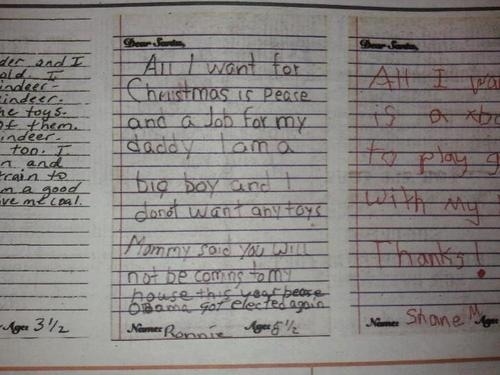 der and I
old. I
indeer-
indeer.
he toys.
of them.
indeer-
ton. I
n and
train to
m a good
ve me coal.
Age: 3 1/2
Dear Santa,
All I want for
Christmas is pease
and a Job for my
daddy I am a
big boy and I
donot want any toys
Mommy said you will
not be coming to my
house this year pease
Obama got elected again
Name: Ronnie Age: 6 1/2
Dear Santa,
All I wa
is a xbo
to play g
with my
Thanks!
Name: Shane M Age: